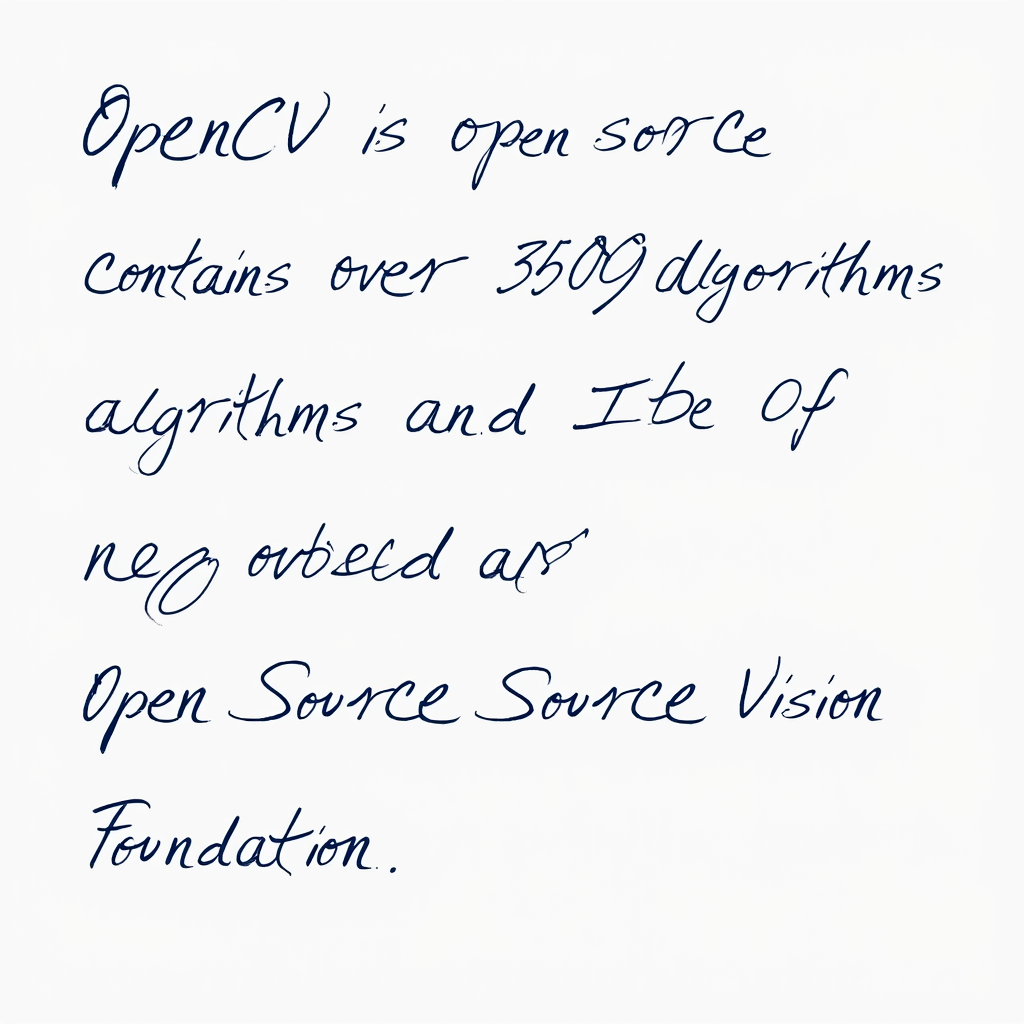 OpenCV is open sorce
contains over 3509 algorithms
algrithms and Ibe Of
Open Source Source Vision
Foundation.